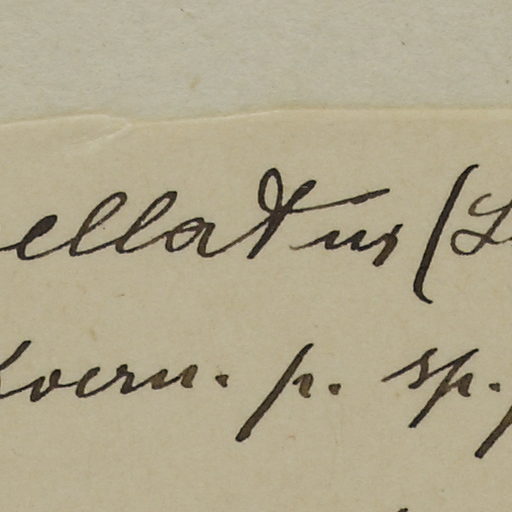 ellatus (L
Koern. p. sp.